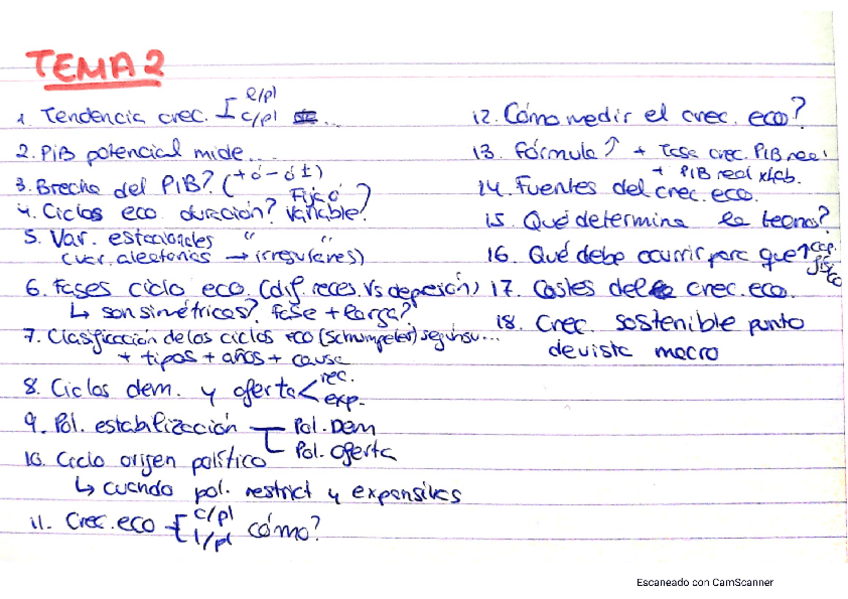 TEMA 2
1. Tendencia crec. l/pl
c/pl ...
2. PiB potencial mide...
3. Brecha del PIB? (+ó-ó±)
4. Ciclos eco. duración? Fijo ó variable?
5. Var. estacionales " "
(var. aleatorias → irregulares)
6. Fases ciclo eco. (dif. reces. Vs depresión)
↳ son simétricas? fase + larga?
7. Clasificación de los ciclos eco (Schumpeter) según su...
+ tipos + años + causa
8. Ciclos dem. y oferta < rec.
exp.
9. Pol. estabilización Pol. Dem
Pol. Oferta
10. Ciclo origen político
↳ cuando pol. restrict y expansivas
11. Crec. eco c/pl
l/pl cómo?
12. Cómo medir el crec. eco?
13. Fórmula ↑ + Tasa crec. PIB real
+ PIB real xhab.
14. Fuentes del crec. eco.
15. Qué determina la tecno?
16. Qué debe ocurrir para que ↑ cap. físico
17. Costes del crec. eco.
18. Crec. sostenible punto
de vista macro
Escaneado con CamScanner